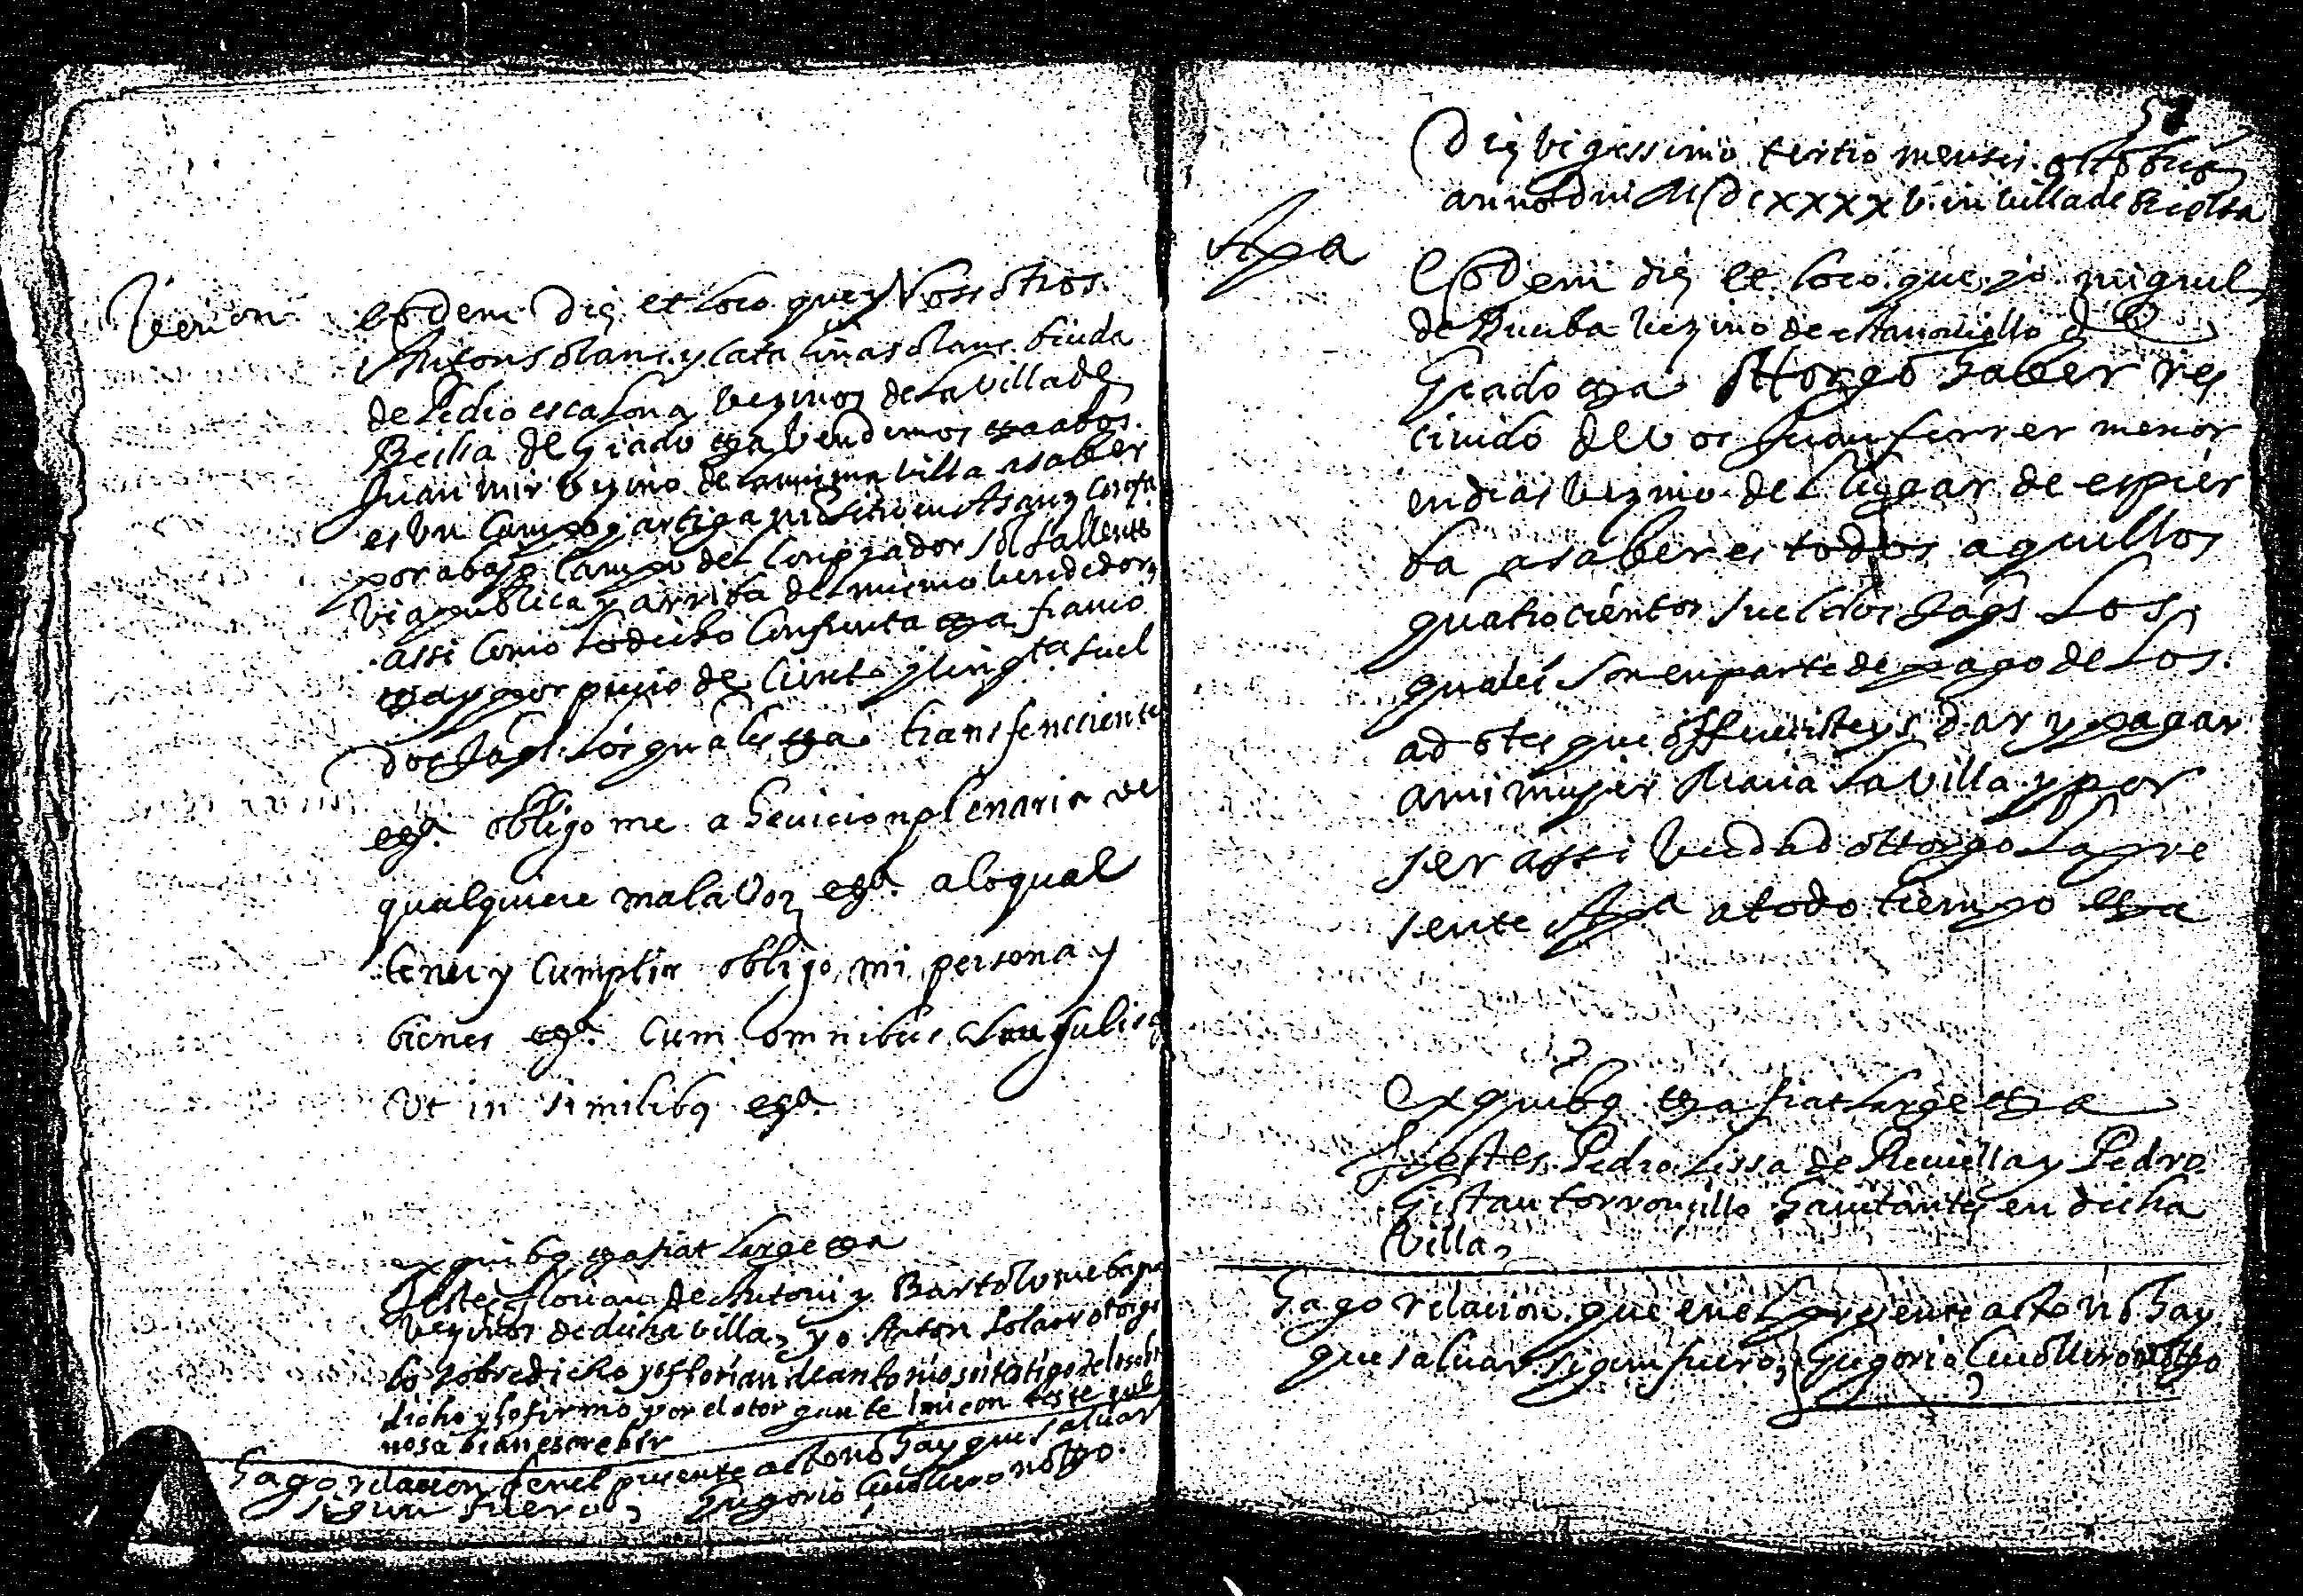 Vencion
Eodem die et loco que Nosotros
Anton Solans y Catalina Solans biuda
de Pedro escalona vezinos de la villa de
Bielsa de grado &a vendemos &a a bos
Juan mir vezino de la misma villa a saber
es un campo y artiga nro sitio en
por abajo campo del conprador
via publica y arriba del mismo vendedor
assi como lo dicho confrenta &a franco
&a y por precio de ciento y cinqta suel
dos Jaqs los quales &a transferecciente
&a obligo me a heviccion plenaria de
qualquiere mala voz &a a lo qual
tener y cumplir obligo mi persona y
bienes &a cum omnibus clausulis
ut in similibq &a
ex quibq &a fiat large &a
Testes florian de Antoni y Bartolome
vezinos de dicha villa, yo Anton Solans otorgo
lo sobredicho yo florian de antoni soi testigo de lo sobre
dicho y lo firmo por el otorgante i mi con teste que
no sabian escrebir
Hago relacion q en el presente acto no hay que saluar
sigun fuero, Gregorio notto.
Die vigessimo tertio mensis octobris
anno dni MDcxxxxv in villa de Bielsa
Apa
Eodem die et loco que yo miguel
de vezino de
Grado &a Attorgo haber re
civido de vos Juan ferrer menor
en dias vezino del lugar de espier
ba a saber es todos aquellos
quatrocientos sueldos Jaqs Los
quales son en parte de pago de los
adotes que offrecisteys dar y pagar
a mi mujer Maria La Villa y por
ser assi verdad ottorgo La pre
sente Apa a todo tiempo &a
ex quibq &a fiat large &a
Testes Pedro Lissa de Revilla y Pedro
Gistau torroncillo havitantes en dicha
Villa,
Hago relacion que en el presente acto no hay
que saluar sigun fuero, Gregorio notto